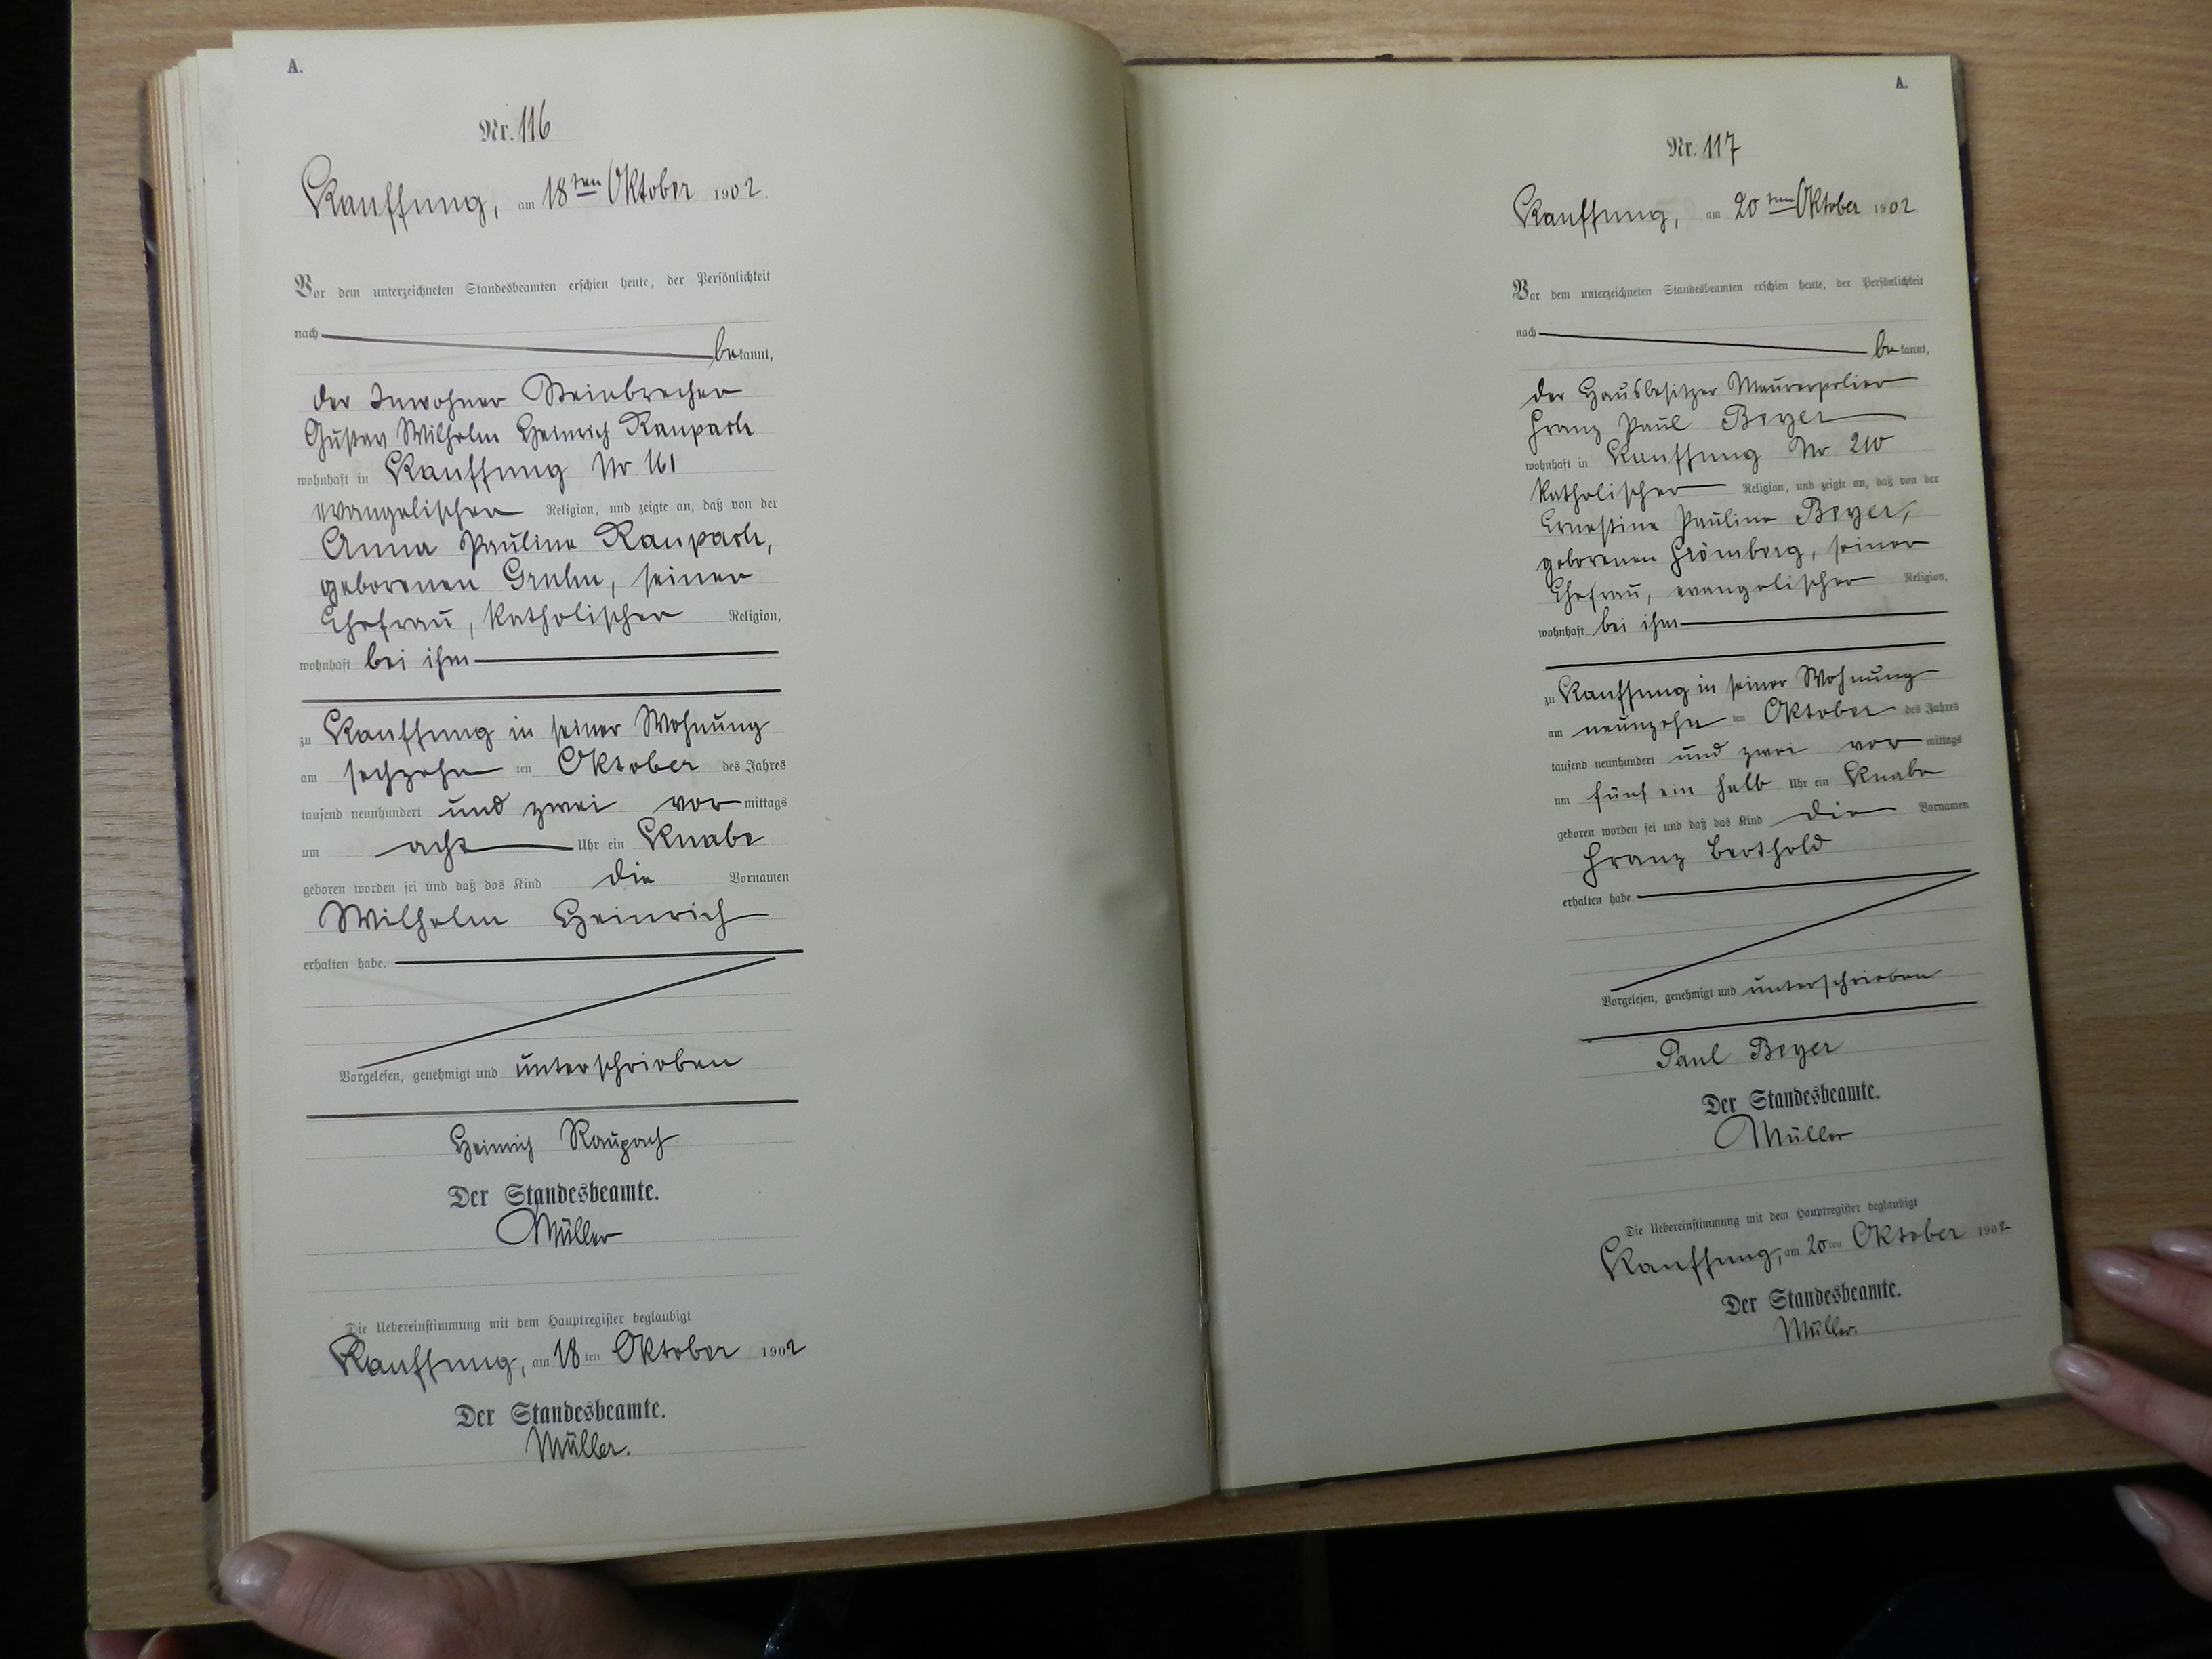 A.
Nr. 116
Kauffung, am 18ten Oktober 1902.
Vor dem unterzeichneten Standesbeamten erschien heute, der Persönlichkeit
nach
bekannt,
der Inwohner Steinbrecher
Gustav Wilhelm Heinrich Raupach
wohnhaft in Kauffung Nr 161
evangelischer Religion, und zeigte an, daß von der
Anna Pauline Raupach,
geborenen Gruhn, seiner
Ehefrau, katholischer Religion,
wohnhaft bei ihm
zu Kauffung in seiner Wohnung
am sechzehn ten Oktober des Jahres
tausend neunhundert und zwei vormittags
um acht Uhr ein Knabe
geboren worden sei und daß das Kind die Vornamen
Wilhelm Heinrich
erhalten habe.
Vorgelesen, genehmigt und unterschrieben
Heinrich Raupach
Der Standesbeamte.
Müller
Die Uebereinstimmung mit dem Hauptregister beglaubigt
Kauffung, am 18 ten Oktober 1902
Der Standesbeamte.
Müller.
A.
Nr. 117
Kauffung, am 20ten Oktober 1902
Vor dem unterzeichneten Standesbeamten erschien heute, der Persönlichkeit
nach
bekannt,
der Hausbesitzer Maurerpolier
Franz Paul Beyer
wohnhaft in Kauffung Nr 210
katholischer Religion, und zeigte an, daß von der
Ernestine Pauline Beyer,
geborenen Frömberg, seiner
Ehefrau, evangelischer Religion,
wohnhaft bei ihm
zu Kauffung in seiner Wohnung
am neunzehn ten Oktober des Jahres
tausend neunhundert und zwei vormittags
um fünf ein halb Uhr ein Knabe
geboren worden sei und daß das Kind die Vornamen
Franz Berthold
erhalten habe.
Vorgelesen, genehmigt und unterschrieben
Paul Beyer
Der Standesbeamte.
Müller
Die Uebereinstimmung mit dem Hauptregister beglaubigt
Kauffung, am 20 ten Oktober 1902
Der Standesbeamte.
Müller.